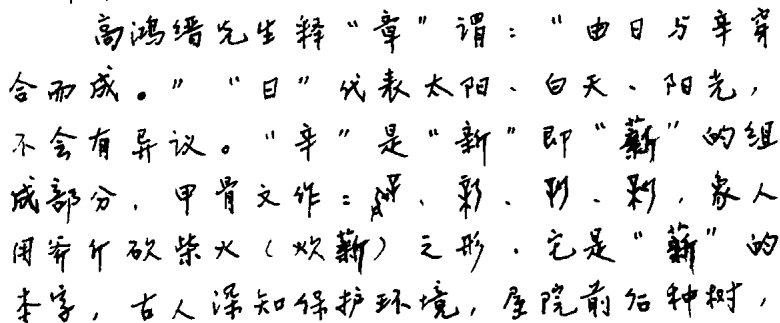 高鸿缙先生释“章”谓：“由日与辛穿
合而成。”“日”代表太阳、白天、阳光，
不会有异议。“辛”是“新”即“薪”的组
成部分，甲骨文作：、、、，象人
用斧斤砍柴火（炊薪）之形．它是“薪”的
本字，古人深知保护环境，屋院前后种树，